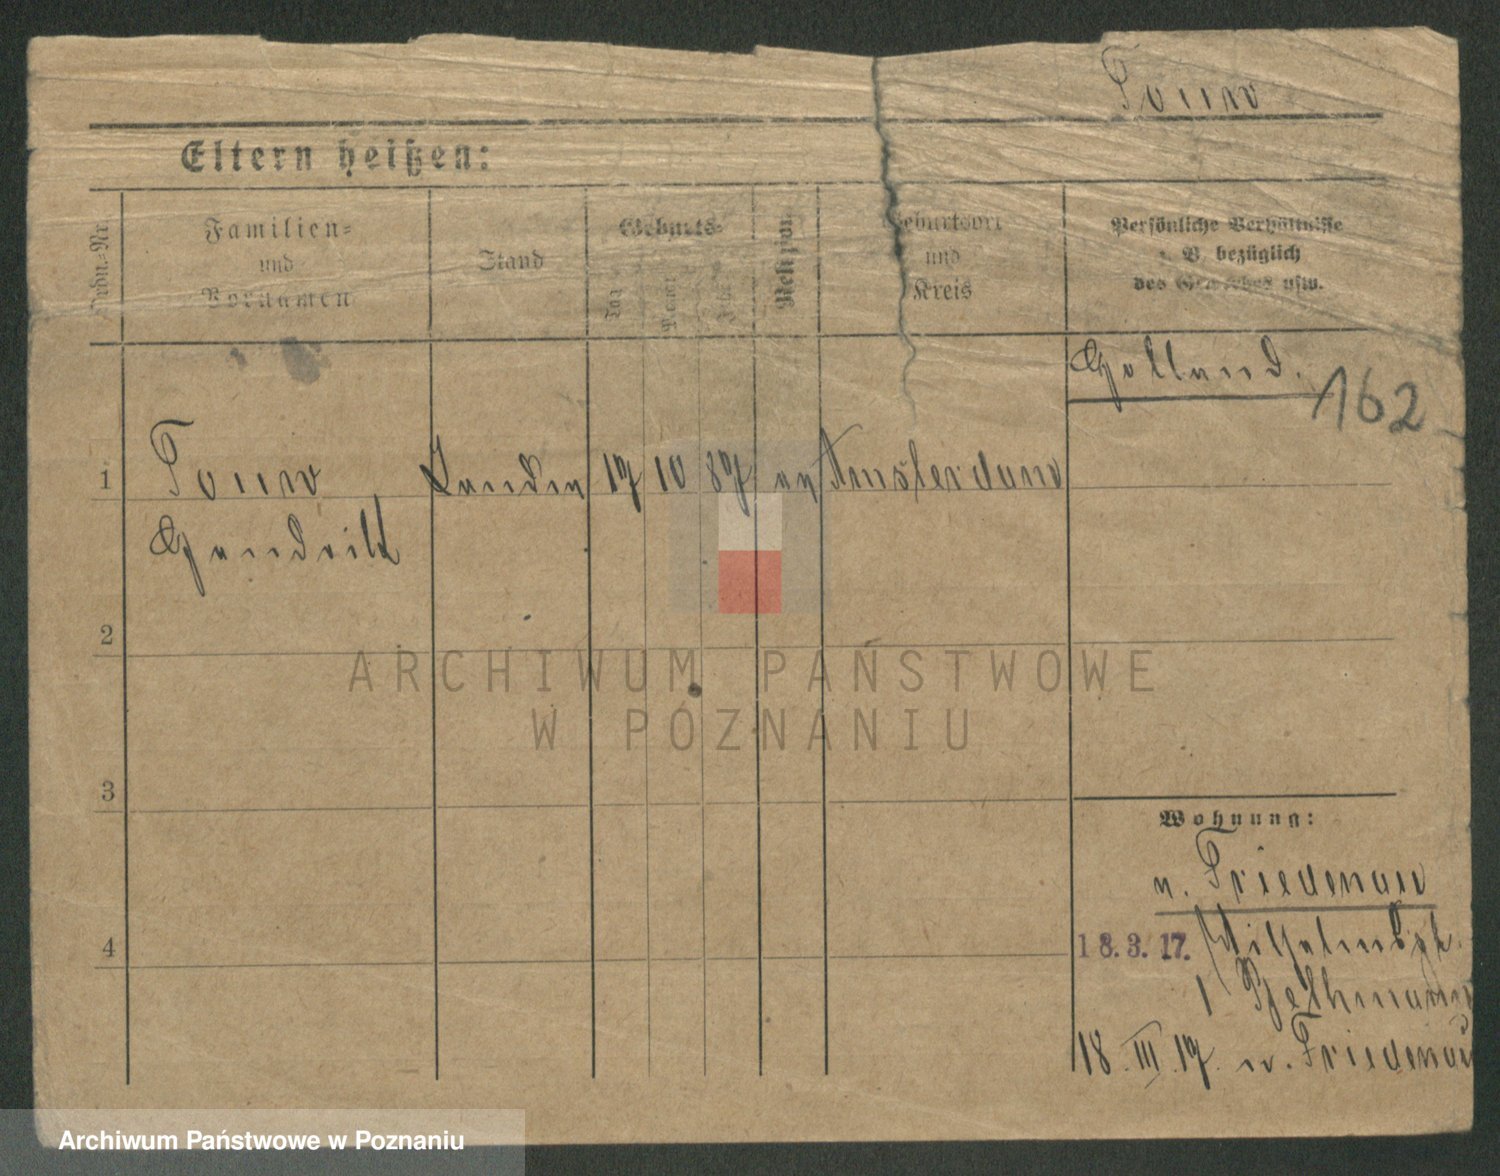 Touw
Eltern heißen:
Ordn.-Nr.
Familien-
und
Vornamen
Stand
Geburts-
Tag
Monat
Jahr
Religion
Geburtsort
und
Kreis
Persönliche Verhältnisse
z. B. bezüglich
des Gewerbes usw.
Holland.
162
1
Touw
17 10 87 Amsterdam
Hendrik
2
3
4
Wohnung:
n. Friedenau
18.3.17. Wilhelmstr.
1 Bethmann
18. III. 17. n. Friedenau
ARCHIWUM PAŃSTWOWE
W POZNANIU
Archiwum Państwowe w Poznaniu